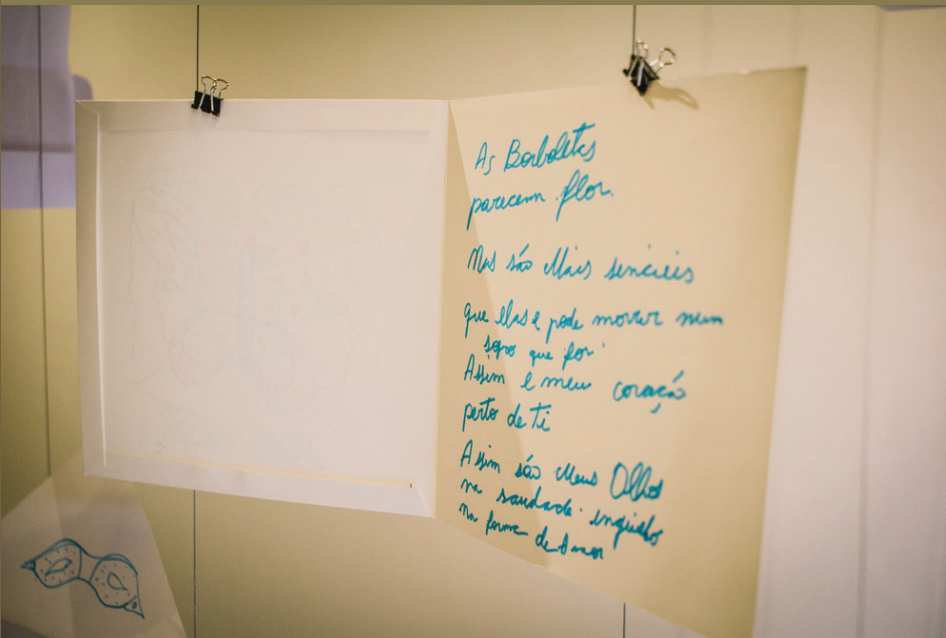 As Borboletas
parecem flor.
Mas são Mais sencieis
que Elas e pode morrer num
sopro que for
Assim e meu coração
perto de ti
Assim são Meus Olhos
na saudade inquieto
na forma de Amor